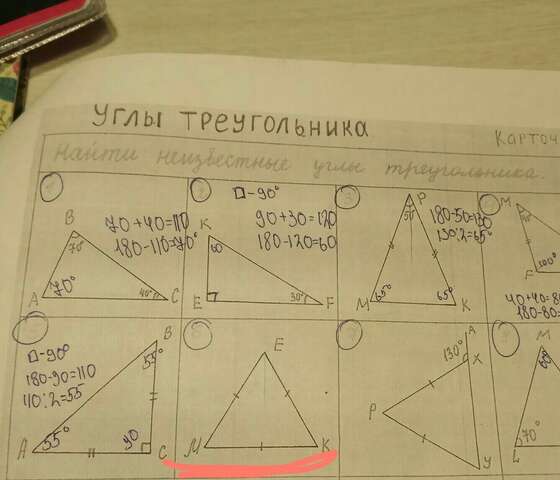 УГЛЫ ТРЕУГОЛЬНИКА
Карточ
Найти неизвестные углы треугольника.
1
B
70°
70+40=110
180-110=70°
A
70°
40°
C
2
□-90°
90+30=120
180-120=60
K
60
E
30°
F
3
P
50°
180-50=130
130:2=65°
M
65°
65°
K
M
F
100°
40+40=8
180-80=
□-90°
180-90=110
110:2=55
B
55°
A
55°
90
C
6
E
M
K
A
130°
X
P
У
M
60°
70°
L